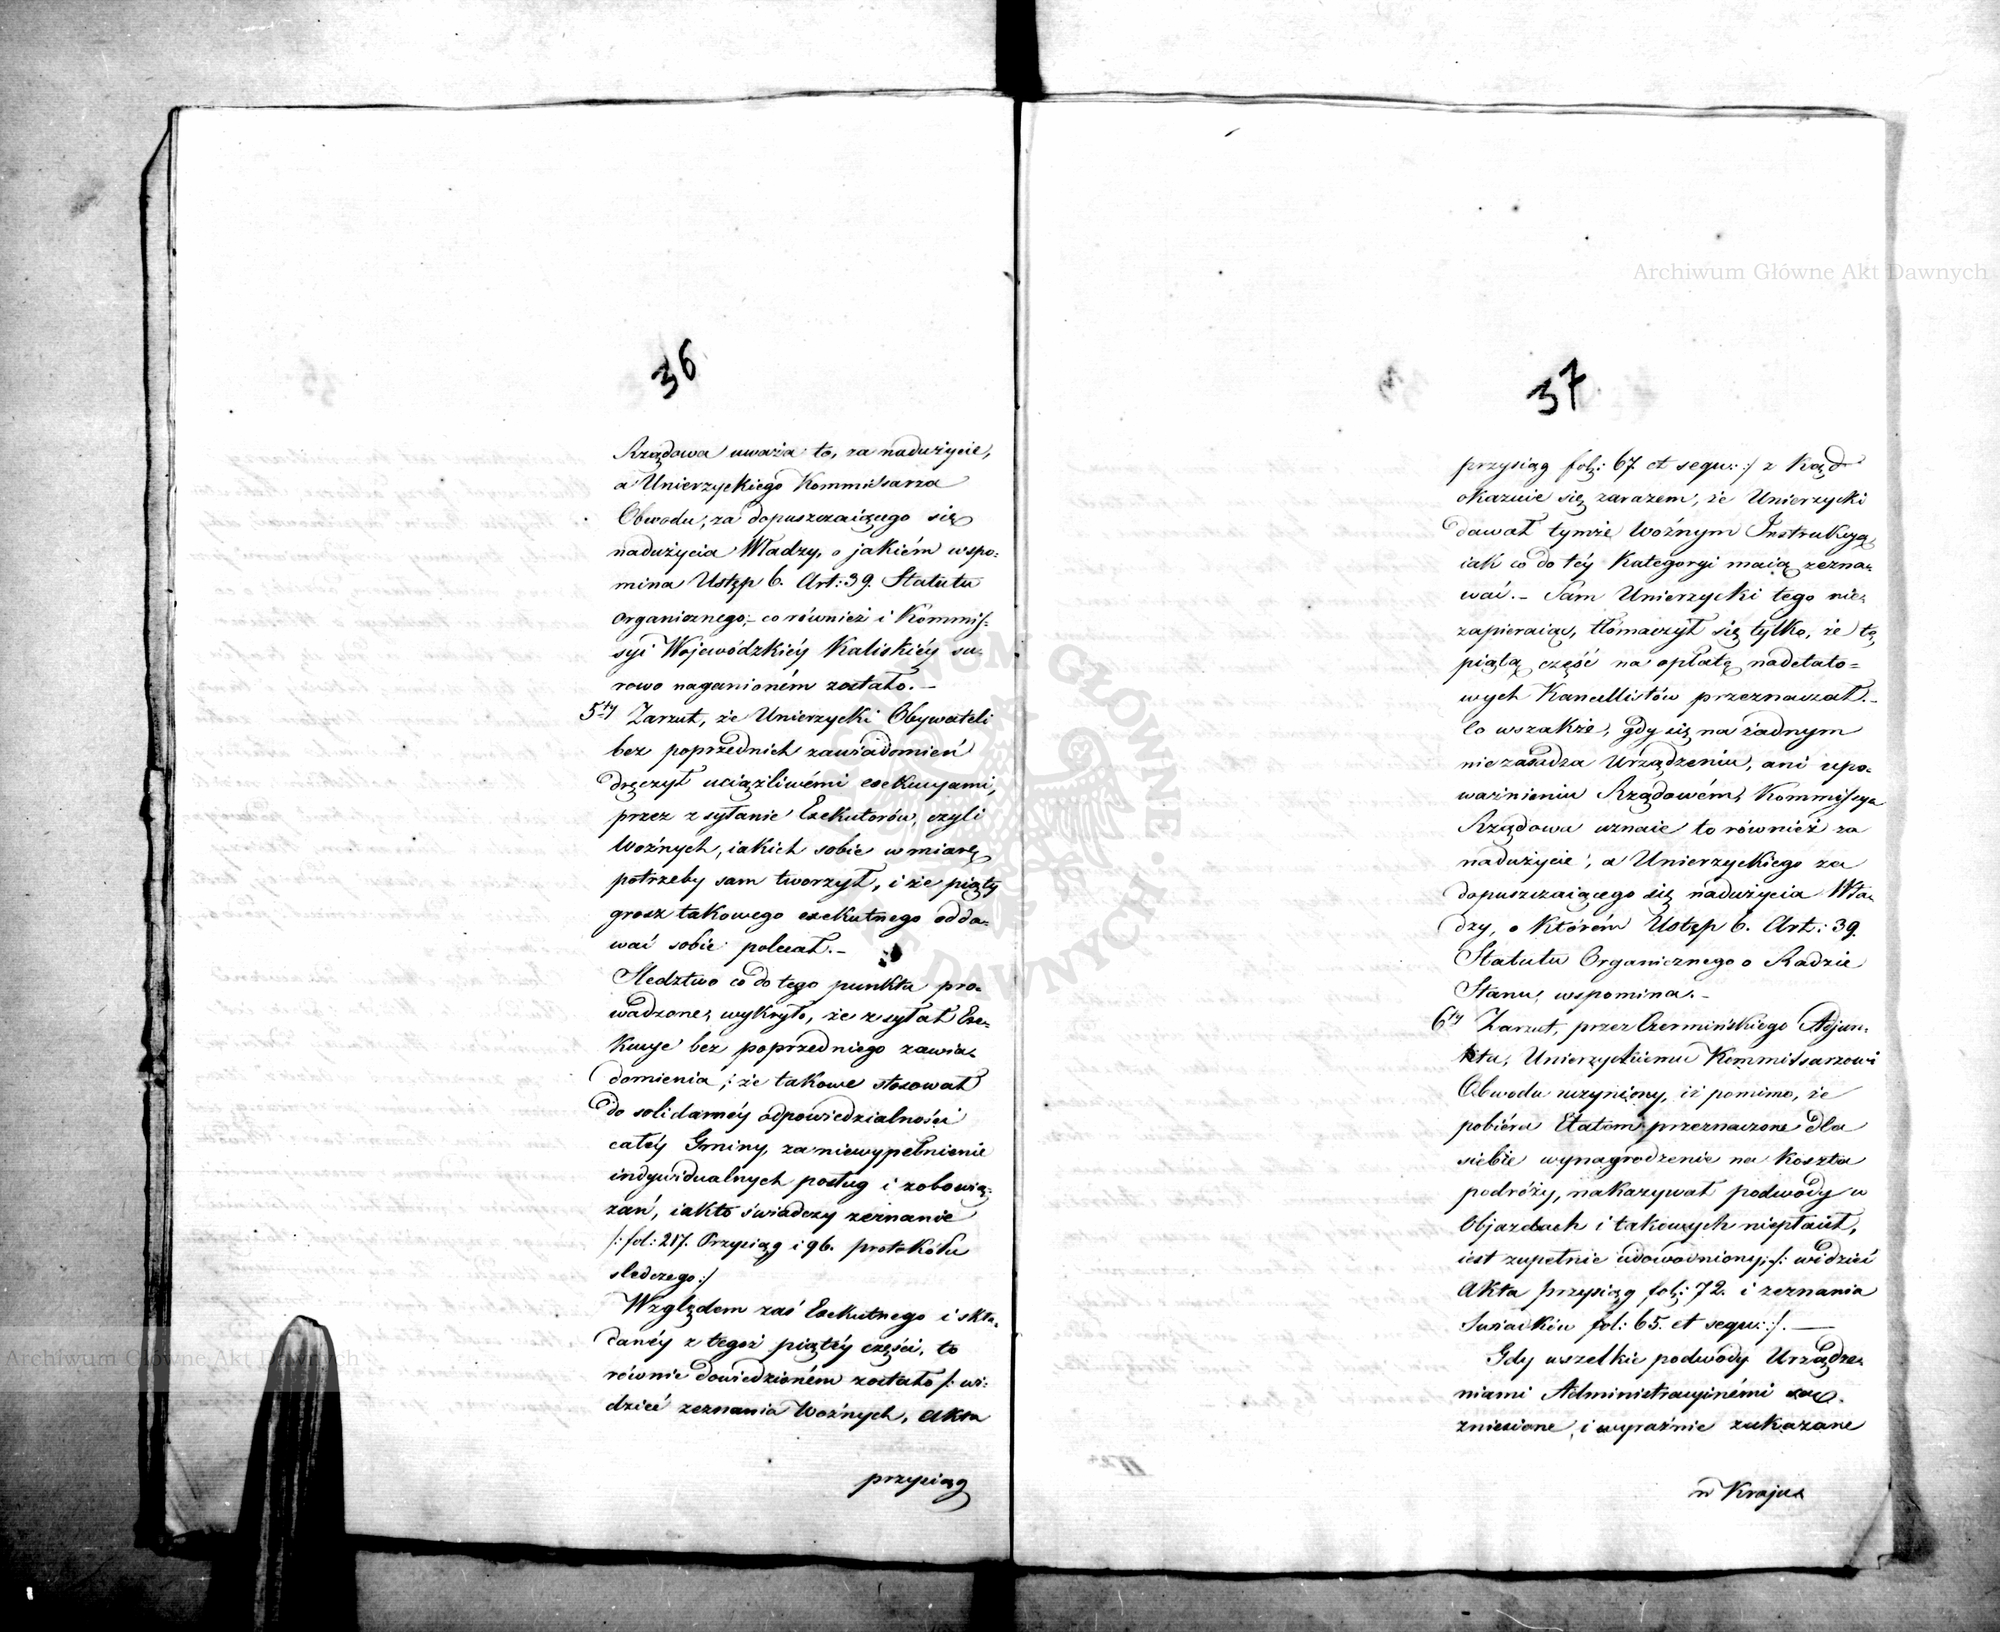 36
Rządowa uważa to, za nadużycie,
a Unierzyckiego Kommissarza
Obwodu, za dopuszczaiącego się
nadużycia Władzy, o jakiém wspo-
mina Ustęp 6. Art: 39. Statutu
Organicznego; co również i Kommis-
syi Wojewódzkiéy Kaliskiéy su-
rowo naganioném zostało.-
5ty Zarzut, że Unierzycki Obywateli
bez poprzednich zawiadomień
dręczył uciążliwémi exekucyami,
przez zsyłanie Exekutorów, czyli
Woźnych, iakich sobie w miarę
potrzeby sam tworzył, i że piąty
grosz takowego exekutnego odda-
wać sobie polecał.-
Sledztwo co do tego punktu pro-
wadzone, wykryło, że zsyłał Exe-
kucye bez poprzedniego zawia-
domienia; że takowe stosował
do solidarnéy odpowiedzialności
całéy Gminy, za niewypełnienie
indywidualnych posług i zobowią-
zań, iak to świadczy zeznanie
/: fol: 217. Przysiąg i 96. protokółu
sledczego :/
Względem zaś Exekutnego i skła-
danéy z tegoż piątéy części, to
równie dowiedzioném zostało /: wi-
dzieć zeznania Woźnych, Akta
przysiąg
37
przysiąg fol: 67 et sequ: :/ z kąd
okazuie się zarazem, że Unierzycki
dawał tymże Woźnym Instrukcyą,
iak co do téy Kategoryi maią zezna-
wać.- Sam Unierzycki tego nie-
zapieraiąc, tłómaczył się tylko, że tę
piątą część na opłatę nadetato-
wych Kancellistów przeznaczał.-
Co wszakże, gdy się na żadnym
niezasadza Urządzeniu, ani upo-
ważnieniu Rządowém, Kommissya
Rządowa uznaie to również za
nadużycie, a Unierzyckiego za
dopuszczaiącego się nadużycia Wła-
dzy, o którém Ustęp 6. Art: 39.
Statutu Organicznego o Radzie
Stanu, wspomina.-
6ty Zarzut, przez Czermińskiego Adjun-
kta, Unierzyckiemu Kommissarzowi
Obwodu uczyniony, iż pomimo, że
pobiéra Etatem przeznaczone dla
siebie wynagrodzenie na koszta
podróży, nakazywał podwody w
Objazdach i takowych niepłacił,
iest zupełnie udowodniony; /: widzieć
Akta przysiąg fol: 72. i zeznania
Swiadków fol: 65. et sequ: :/. —
Gdy wszelkie podwody Urządze-
niami Administracyinémi są
zniesione, i wyraźnie zakazane
w Kraju
Archiwum Główne Akt Dawnych
Archiwum Główne Akt Dawnych